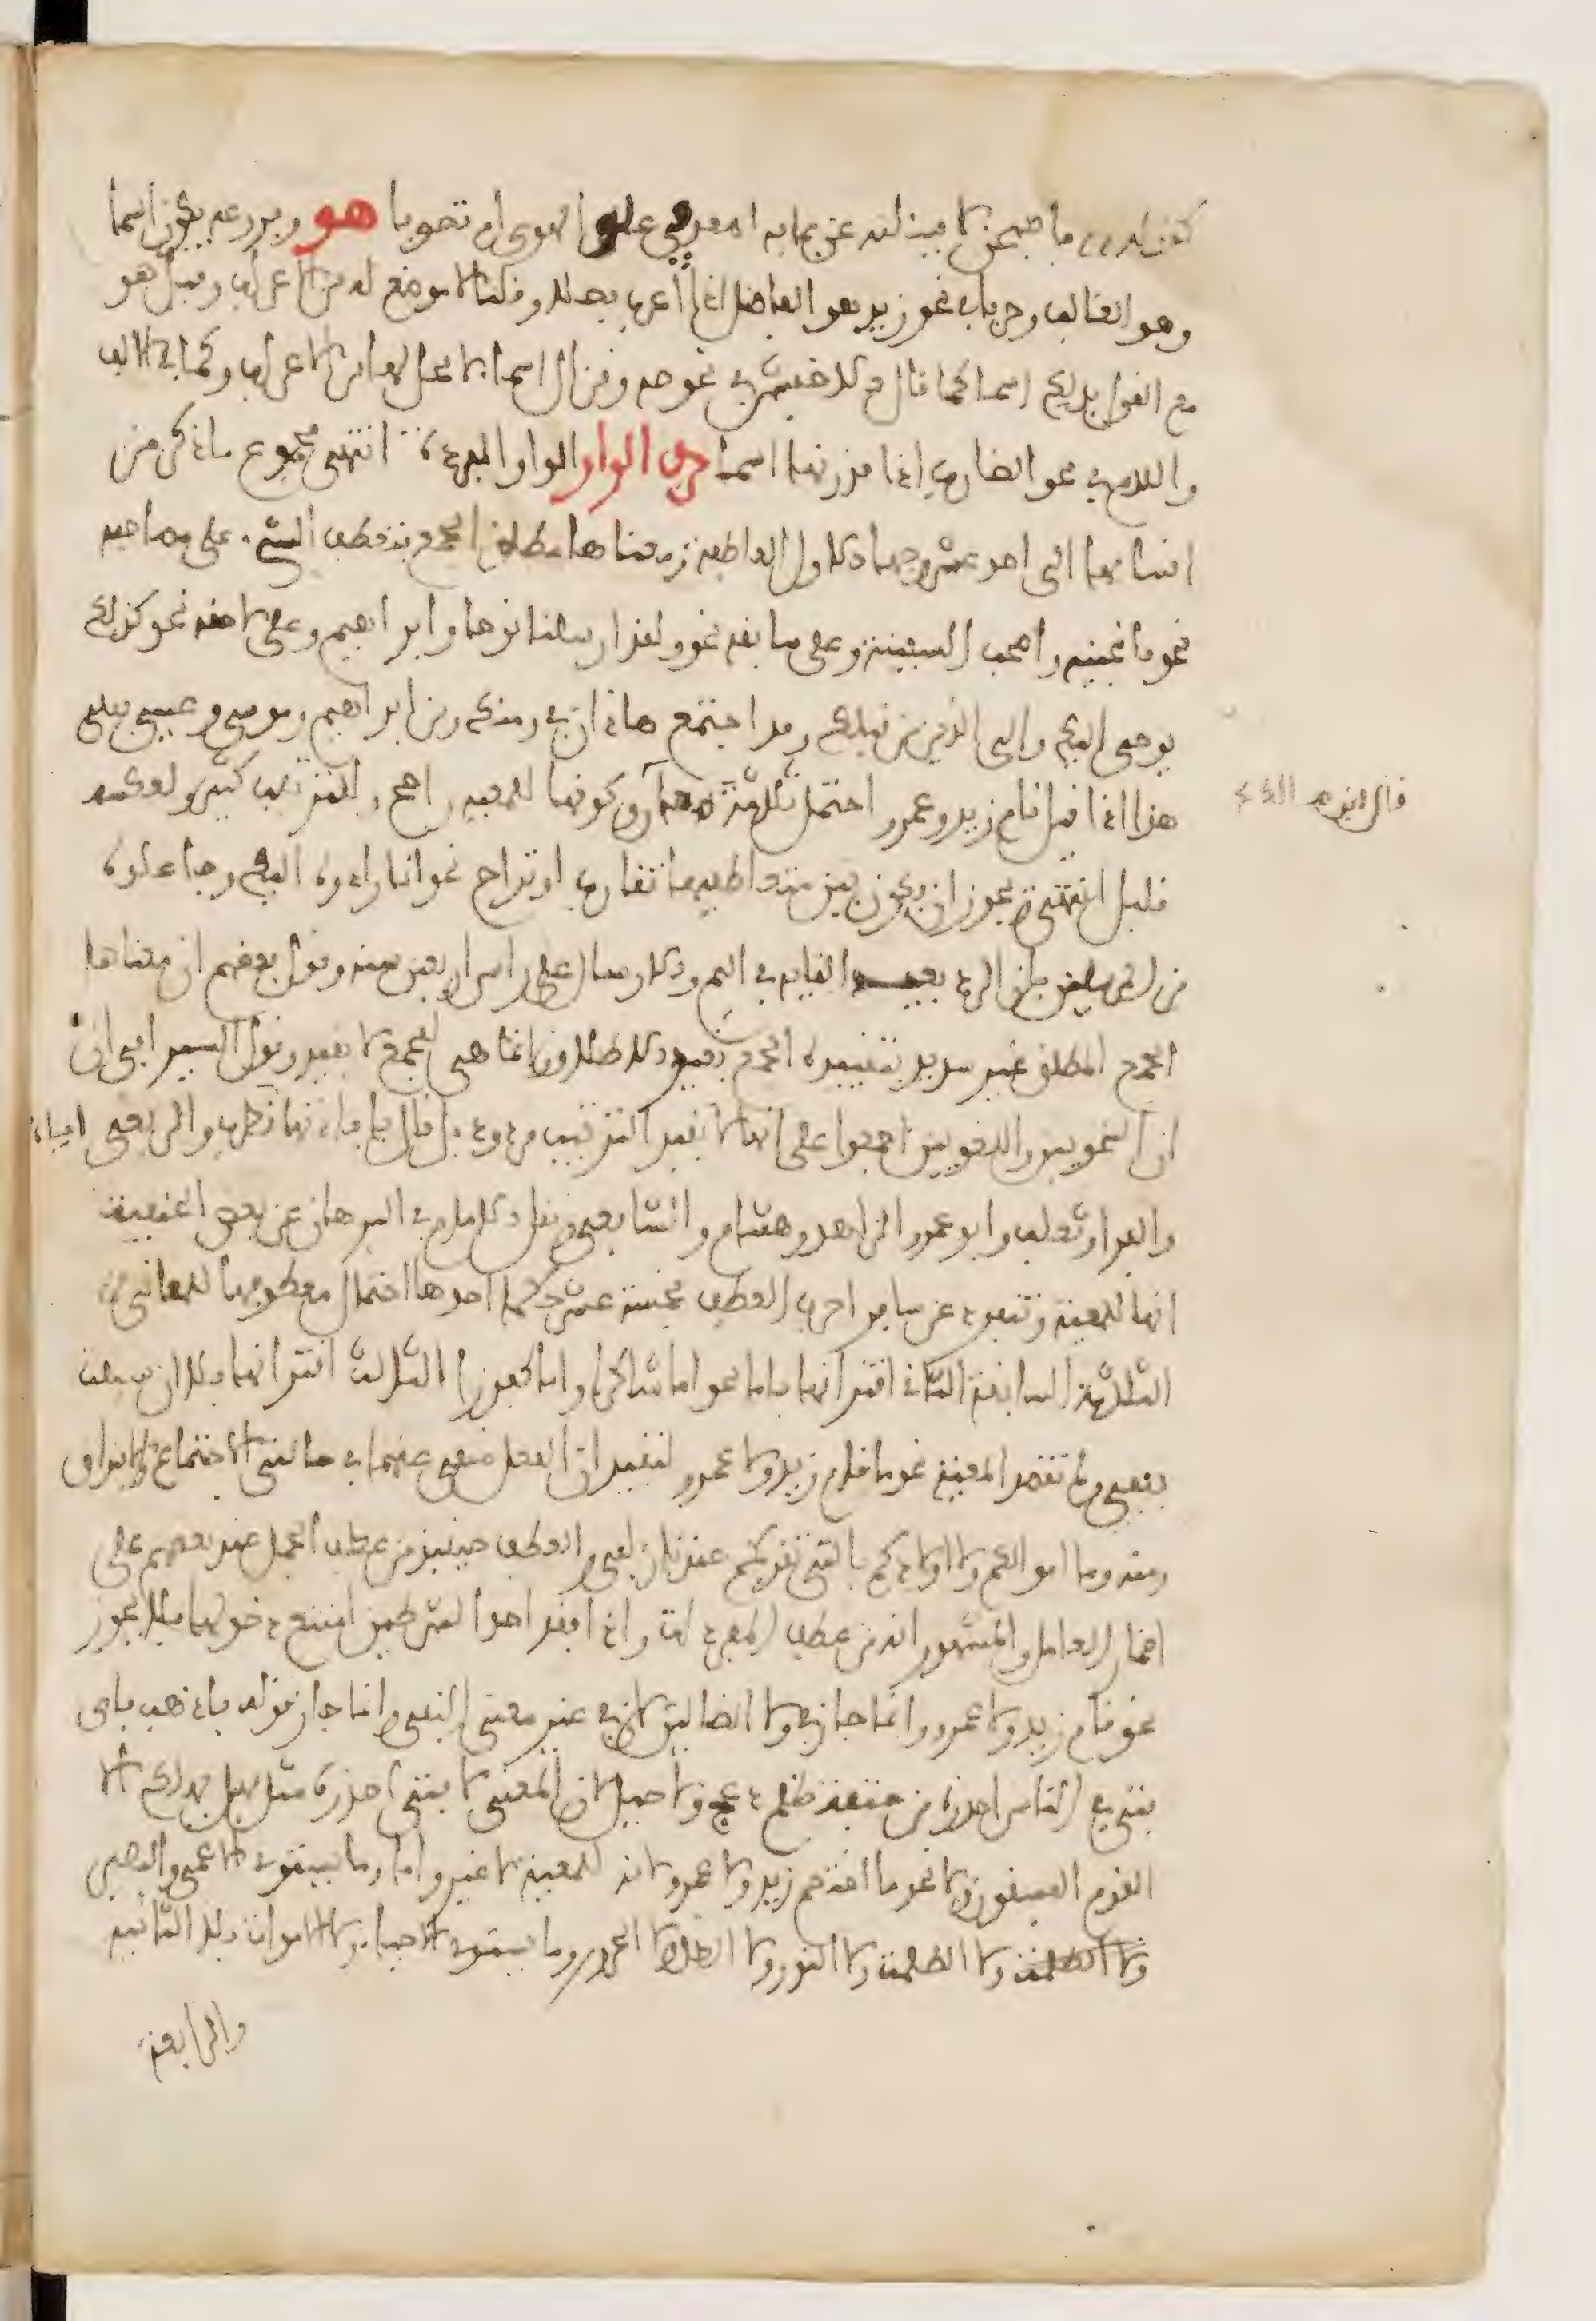 ما هي من لا فيد لقد عز بها به ام هو وفروعه يكون اسما
وهو الغالب وحرفا في نحو زيد هو الفاضل اذا اعرب فصلا وقلنا لا موضع له من الاعراب وقيل هو
مع القول بذلك اسم كما قال الاخفش في نحو صه ونزال اسما لا محل لها من الاعراب وكما في الالف
واللام في نحو الضارب اذا قدرنهما اسما حرف الواو الواو المفردة انتهى مجموع ما ذكر من
اقسامها الى احد عشر وجها الاول العاطفة ومعناها مطلق الجمع فتعطف الشيء على مصاحبه
نحو فانجينه واصحب السفينة وعلى سابقه نحو ولقد ارسلنا نوحا وابراهيم وعلى لاحقه نحو كذلك
يوحى اليك والى الذين من قبلك وقد اجتمع هاذان في ومنك ومن ابراهيم وموسى وعيسى فعلى
هذا اذا قيل قام زيد وعمرو احتمل ثلثة معان وكونها للمعية راجح وللترتيب كثير ولعكسه
قال ابن مالك
قليل انتهى ويجوز ان يكون بين متعاطفيها تقارب او تراخ نحو انا رادوه اليك وجاعلوه
من المرسلين فان الرد بعيد القايه في اليم والارسال على راس اربعين سنة وقول بعضهم ان معناها
الجمع المطلق غير سديد لتقييد الجمع بقيد الاطلاق وانما هي للجمع لا بقيد وقول السيرافي ان
ان النحويين واللغويين اجمعوا على انها لا تفيد الترتيب مردود بل قال بافادتها قطرب والربعي
والفرا وثعلب وابو عمرو الزاهد وهشام والشافعي ونقل الامام في البرهان عن بعض الحنفية
انها للمعية وتنفرد عن ساير احرف العطف بخمسة عشر حكما احدها احتمال معطوفها للمعاني
الثلثة السابقة الثاني اقترانها باما نحو اما شاكرا واما كفورا الثالث اقترانها بلا ان سبقت
بنفي ولم تقصد المعية نحو ما قام زيد ولا عمرو لتفيد ان الفعل منفي عنهما في حالتي الاجتماع والافتراق
ومنه وما اموالكم ولا اولادكم بالتي تقربكم عندنا زلفى والعطف حينئذ من عطف الجمل عند بعضهم على
اضمار العامل والمشهور انه من عطف المفردات واذا فقد احد الشرطين امتنع دخولها فلا يجوز
نحو قام زيد ولا عمرو وانما جاز في ولا الضالين لان في غير معنى النفي وانما جاز قوله فاذهب فاى
فتى في الناس احرزه من حتفه ظلم دعج ولا حبل لان المعنى لا فتى احرزه مثل فهل يهلك الا
القوم الفسقون ولا نحو ما اختصم زيد ولا عمرو لانه للمعية لا غير واما وما يستوى الاعمى والبصير
ولا الظلمت ولا النور ولا الظل ولا الحرور وما يستوى الاحياء ولا الاموات فلا الثانية
والرابعة